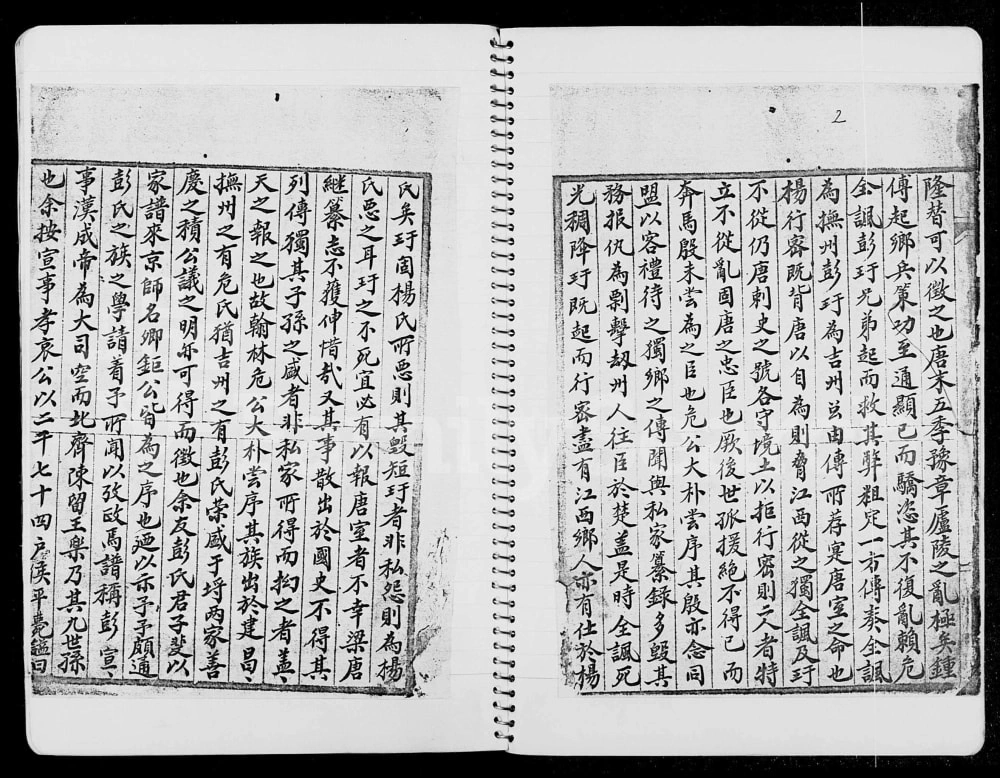 2
隆替可以徵之也唐末五季豫章廬陵之亂極矣鍾
傅起鄉兵策功至通顯已而驕恣其不復亂賴危
全諷彭玕兄弟起而救其弊粗定一方傅泰全諷
為撫州彭玕為吉州茲由傅所荐寔唐室之命也
楊行密既背唐以自為則脅江西從之獨全諷及玕
不從仍唐刺史之號各守境土以拒行密則二人者特
立不從亂固唐之忠臣也厥後世孤援絕不得已而
奔馬殷未嘗為之臣也危公大朴嘗序其殷亦念同
盟以客禮待之獨鄉之傳聞與私家纂錄多毀其
務报仇為剽擊劫州人往臣於楚盖是時全諷死
光稠降玕既起而行密盡有江西鄉人亦有仕於楊
氏矣玕固楊氏所惡則其毀短玕者非私怨則為楊
氏惡之耳玕之不死宜必有以報唐室者不幸梁唐
継纂志不獲伸惜哉又其事散出於國史不得其
列傳獨其子孫之盛者非私家所得而拘之者盖
天之報之也故翰林危公大朴嘗序其族出於建昌
撫州之有危氏猶吉州之有彭氏荣盛于埒两家善
慶之積公議之明亦可得而徵也余友彭氏君子斐以
家譜來京師名卿鉅公皆為之序也廼以示予予願通
彭氏之族之學請着予所聞以孜政馬譜稱彭宣
事漢成帝為大司空而北齊陳留王樂乃其九世孫
也余按宣事孝哀公以二千七十四户侯平薨謚曰